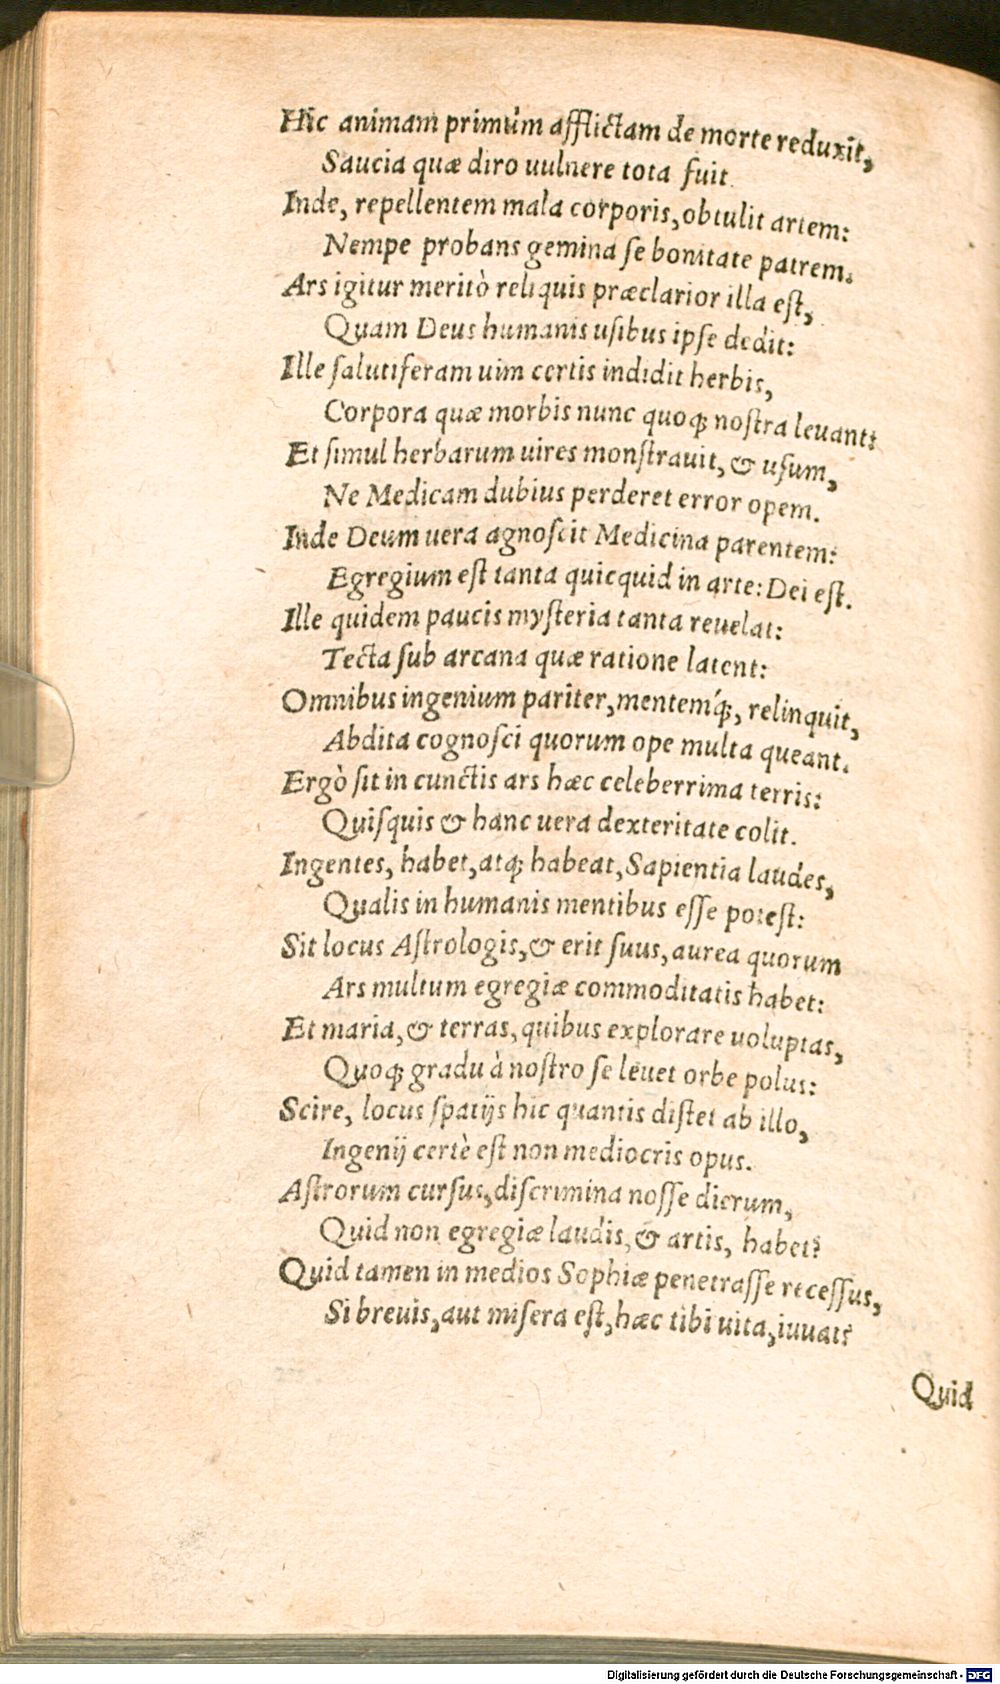 Hic animam primùm afflictam de morte reduxit,
Saucia quæ diro uulnere tota fuit.
Inde, repellentem mala corporis, obtulit artem:
Nempe probans gemina se bonitate patrem.
Ars igitur meritò reliquis præclarior illa est,
Quam Deus humanis usibus ipse dedit:
Ille salutiferam uim certis indidit herbis,
Corpora quæ morbis nunc quoq; nostra leuant:
Et simul herbarum uires monstrauit, & usum,
Ne Medicam dubius perderet error opem.
Inde Deum uera agnoscit Medicina parentem:
Egregium est tanta quicquid in arte: Dei est.
Ille quidem paucis mysteria tanta reuelat:
Tecta sub arcana quæ ratione latent:
Omnibus ingenium pariter, mentemq́;, relinquit,
Abdita cognosci quorum ope multa queant.
Ergò sit in cunctis ars hæc celeberrima terris:
Quisquis & hanc uera dexteritate colit.
Ingentes, habet, atq; habeat, Sapientia laudes,
Qualis in humanis mentibus esse potest:
Sit locus Astrologis, & erit suus, aurea quorum
Ars multum egregiæ commoditatis habet:
Et maria, & terras, quibus explorare uoluptas,
Quoq; gradu à nostro se leuet orbe polus:
Scire, locus spatijs hic quantis distet ab illo,
Ingenij certè est non mediocris opus.
Astrorum cursus, discrimina nosse dierum,
Quid non egregiæ laudis, & artis, habet?
Quid tamen in medios Sophiæ penetrasse recessus,
Si breuis, aut misera est, hæc tibi uita, iuuat?
Quid
Digitalisierung gefördert durch die Deutsche Forschungsgemeinschaft - DFG